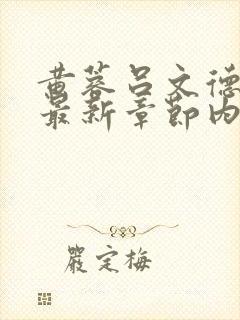 黄蓉吕文德
最新章节内
严定梅